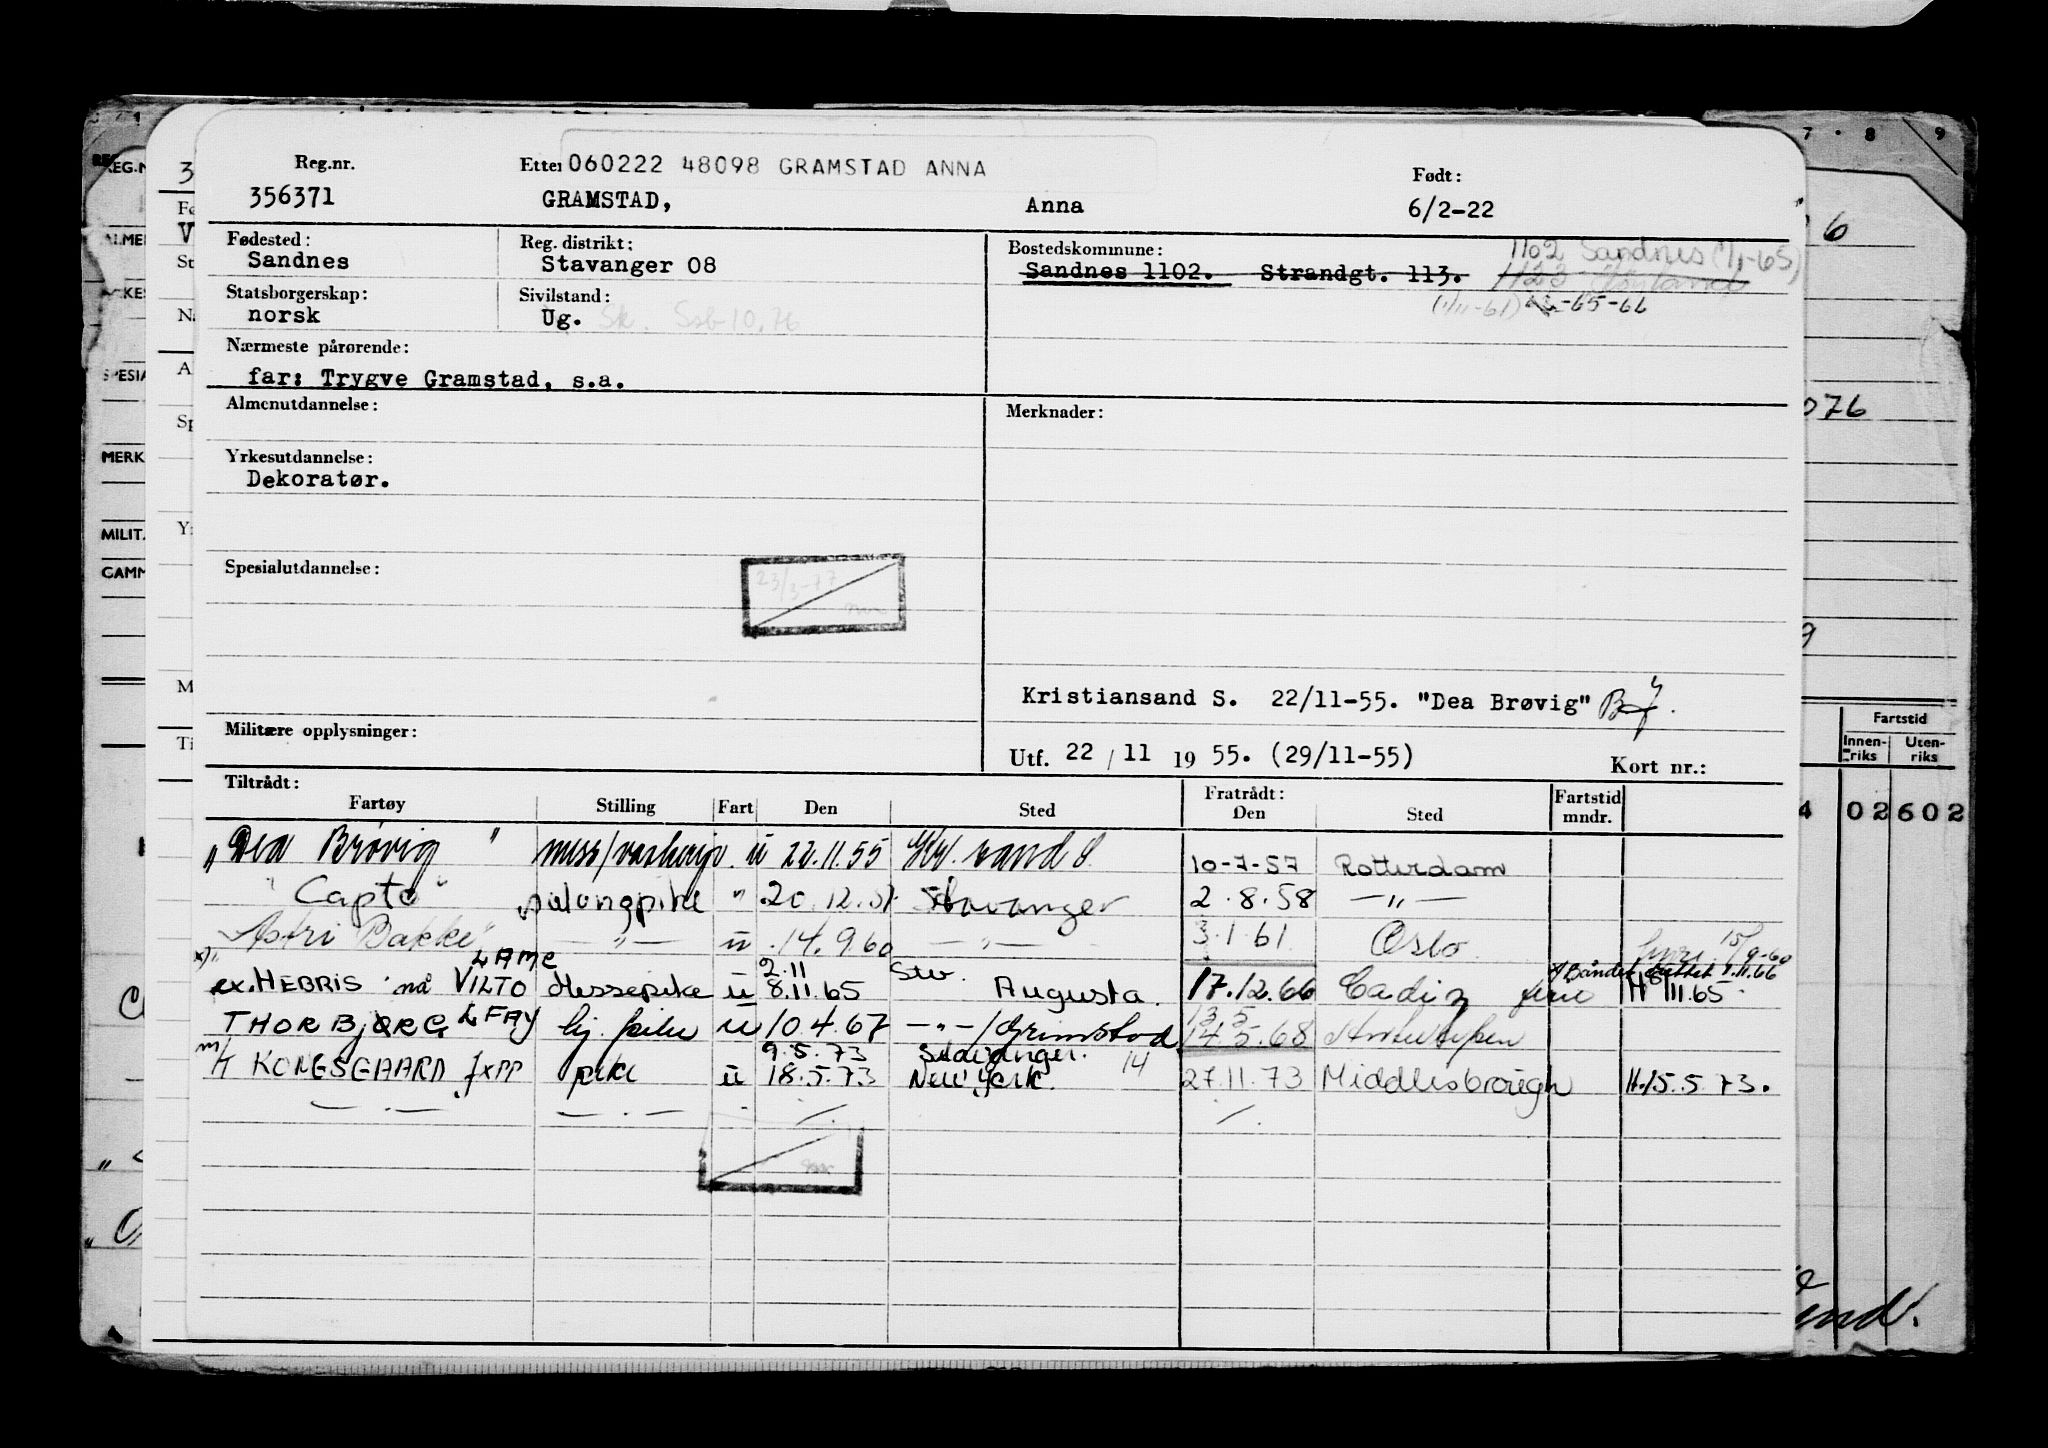 Reg.nr.
060222 48098 GRAMSTAD ANNA
Født:
356371
GRAMSTAD,
Anna
6/2-22
Fødested:
Sandnes
Reg. distrikt:
Stavanger 08
Bostedskommune:
Sandnes 1102. Strandgt. 113.
1102 Sandnes (1/1-65)
1123
(1/11-61)
-65-66
Statsborgerskap:
norsk
Sivilstand:
Ug.
Sk. Ssb 10.76
Nærmeste pårørende:
far: Trygve Gramstad, s.a.
Almenutdannelse:
Merknader:
Yrkesutdannelse:
Dekoratør.
Spesialutdannelse:
23/3-77
Kristiansand S. 22/11-55. "Dea Brøvig"
Militære opplysninger:
Utf. 22 / 11 19 55. (29/11-55)
Kort nr.:
Tiltrådt:
Fartøy Stilling Fart Den Sted
Fratrådt:
Den Sted
Fartstid mndr.
"Dea Brøvig" ü 22.11.55 sand S. 10-7-57 Rotterdam
"Capto" salongpike " 20.12.57 Stavanger 2.8.58 —"—
Astri Bakke" —"— ü 14.9.60 —"— 3.1.61 Oslo 15/9-60
x) ex. HEBRIS nå VILTO LAMC Messepike ü 2.11 8.11.65 Stv. Augusta. 17.12.66 Cadiz ferie H 8/11.65
THORBJØRG LFAY ü 10.4.67 —"—/Grimstad 13.5 14.5.68
m/t KONGSGAARD JXPP pike ü 9.5.73 18.5.73 Stavanger. New York. 14 27.11.73 Middlesbrough H.15.5.73.
Fartstid
Innen-riks
Uten-riks
02 602
076
7 8 9